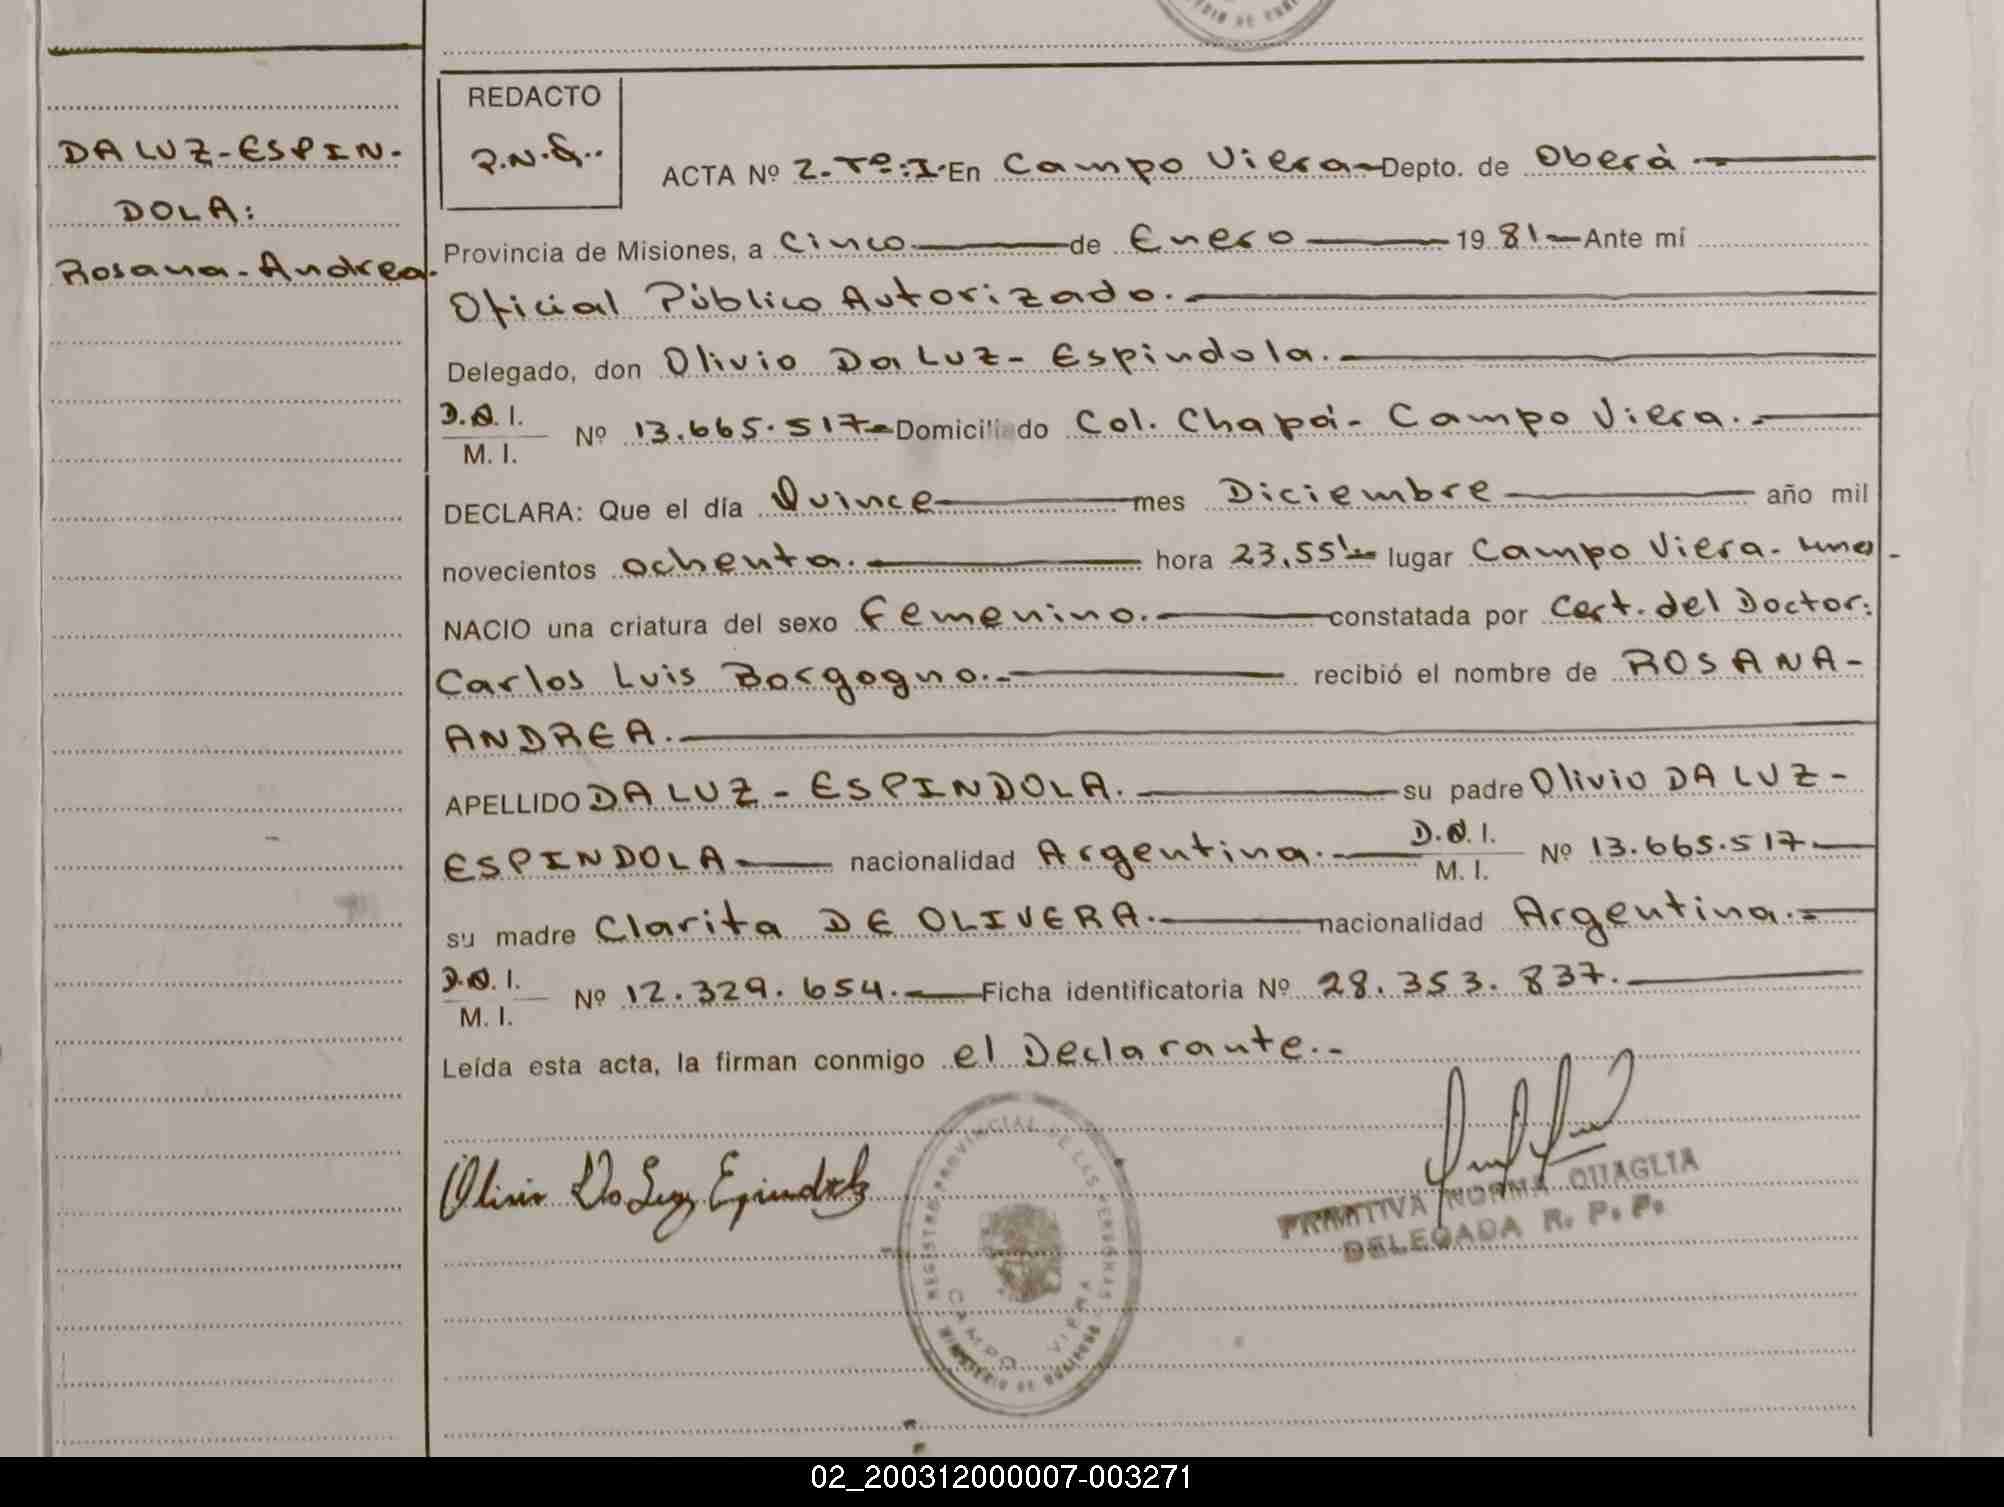 DA LUZ-ESPIN-
DOLA:
Rosana-Andrea.
REDACTO
P.N.Q..
ACTA Nº 2.-Tº:I.- En Campo Viera- Depto. de Oberà.-
Provincia de Misiones, a Cinco de Enero 1981- Ante mí
Oficial Público Autorizado.-
Delegado, don Olivio Da Luz- Espindola.-
D.N.I.
M. I. Nº 13.665.517.- Domiciliado Col. Chapá- Campo Viera.-
DECLARA: Que el día Quince mes Diciembre año mil
novecientos ochenta.- hora 23,55'- lugar Campo Viera.-
NACIO una criatura del sexo femenino.- constatada por Cert. del Doctor:
Carlos Luis Borgogno.- recibió el nombre de ROSANA-
ANDREA.-
APELLIDO DA LUZ - ESPINDOLA.- su padre Olivio DA LUZ-
ESPINDOLA- nacionalidad Argentina.- D.N.I.
M. I. Nº 13.665.517-
su madre Clarita DE OLIVERA.- nacionalidad Argentina.-
D.N.I.
M. I. Nº 12.329.654.- Ficha identificatoria Nº 28.353.837.-
Leída esta acta, la firman conmigo el Declarante.-
Olivio Da Luz Espindola
REGISTRO PROVINCIAL DE LAS PERSONAS
CAMPO VIERA
MINISTERIO DE GOBIERNO
PRIMITIVA NORMA QUAGLIA
DELEGADA R. P. P.
02_200312000007-003271